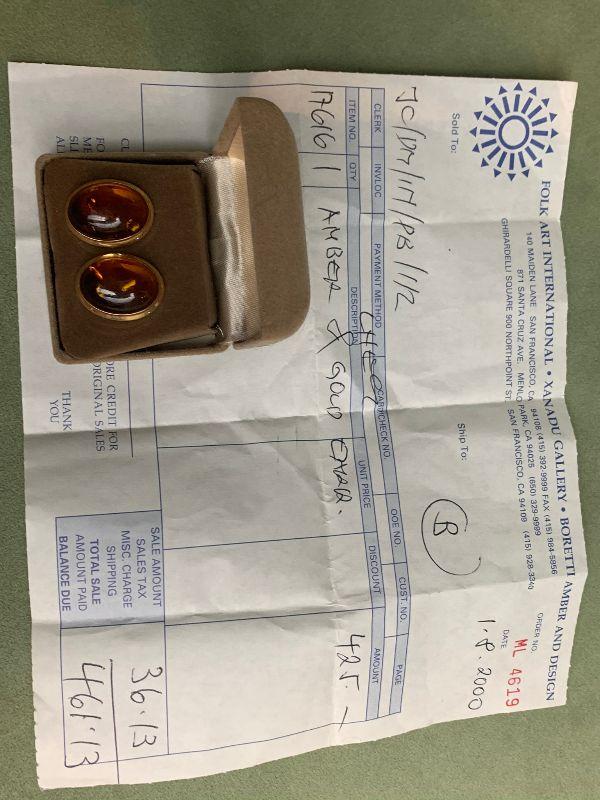 FOLK ART INTERNATIONAL • XANADU GALLERY • BORETTI AMBER AND DESIGN
140 MAIDEN LANE SAN FRANCISCO, CA 94108 (415) 392-9999 FAX (415) 984-5856
871 SANTA CRUZ AVE. MENLO PARK, CA 94025 (650) 329-9999
GHIRARDELLI SQUARE 900 NORTHPOINT ST. SAN FRANCISCO, CA 94109 (415) 928-3340
ORDER NO. ML 4619
DATE 1.8.2000
Sold To:
Ship To:
B
JC/DM/1M/PB/112
CLERK INV.LOC PAYMENT METHOD CARD/CHECK NO. OOE NO. CUST. NO. PAGE
ITEM NO. QTY DESCRIPTION UNIT PRICE DISCOUNT AMOUNT
17616 1 AMBER & GOLD 425. –
SALE AMOUNT
SALES TAX 36.13
MISC. CHARGE
SHIPPING
TOTAL SALE 461.13
AMOUNT PAID
BALANCE DUE
CL
FO
ME
SLI
AL
ORE CREDIT FOR
ORIGINAL SALES
THANK
YOU